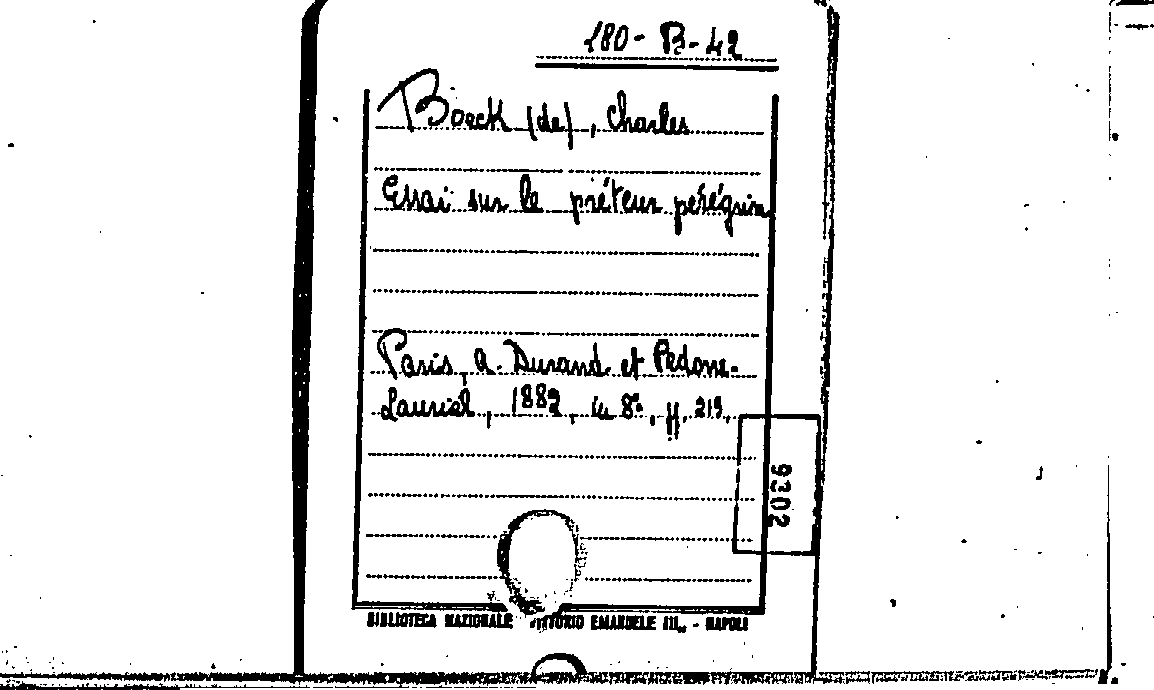 180-B-42
Boeck (de), Charles
Essai sur le préteur pérégrin
Paris, A. Durand et Pedone-
Lauriel, 1882, in 8°, pp. 219.
9302
BIBLIOTECA NAZIONALE "VITTORIO EMANUELE III" - NAPOLI